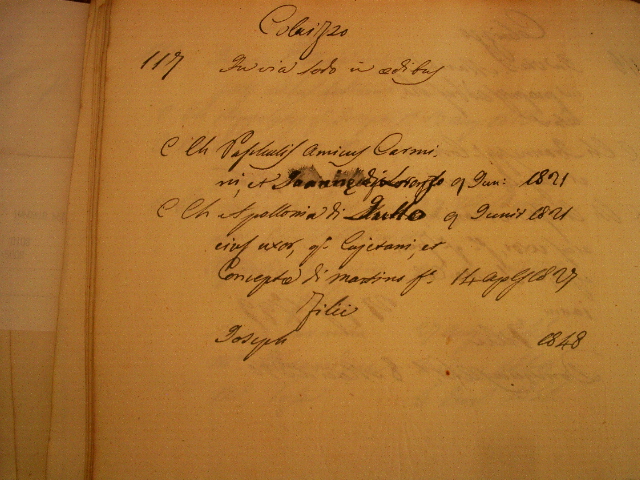 Colaizzo
117 In via Sodo in ædibus
C Ch Paschalis Amicus Carmi,
ni, et Joannæ di Lorenzo 9 Jun: 1821
C Ch Apollonia di Tullo 9 Junii 1821
eius uxor, q. Cajetani, et
Conceptæ di Martino f. 14 Aplis 1827
Filii
Joseph 1848